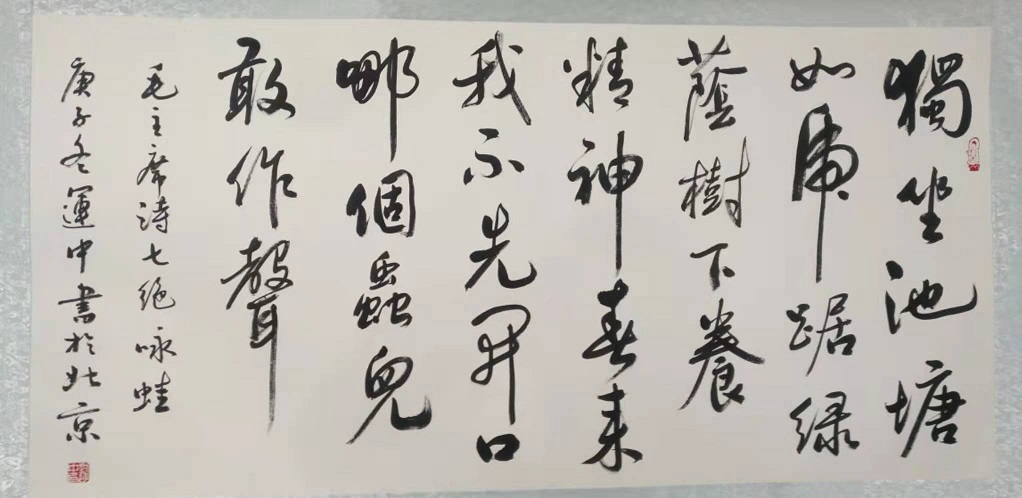 獨坐池塘
如虎踞绿
蔭樹下養
精神春来
我不先開口
哪個蟲兒
敢作聲
毛主席詩七绝咏蛙
庚子冬運中書於北京